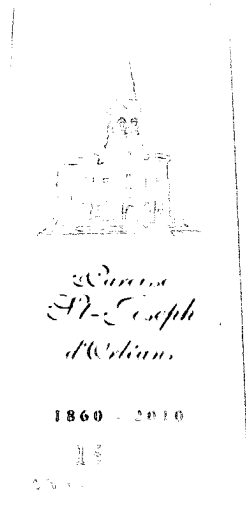 Paroisse
St-Joseph
d'Orléans
1860 - 2010